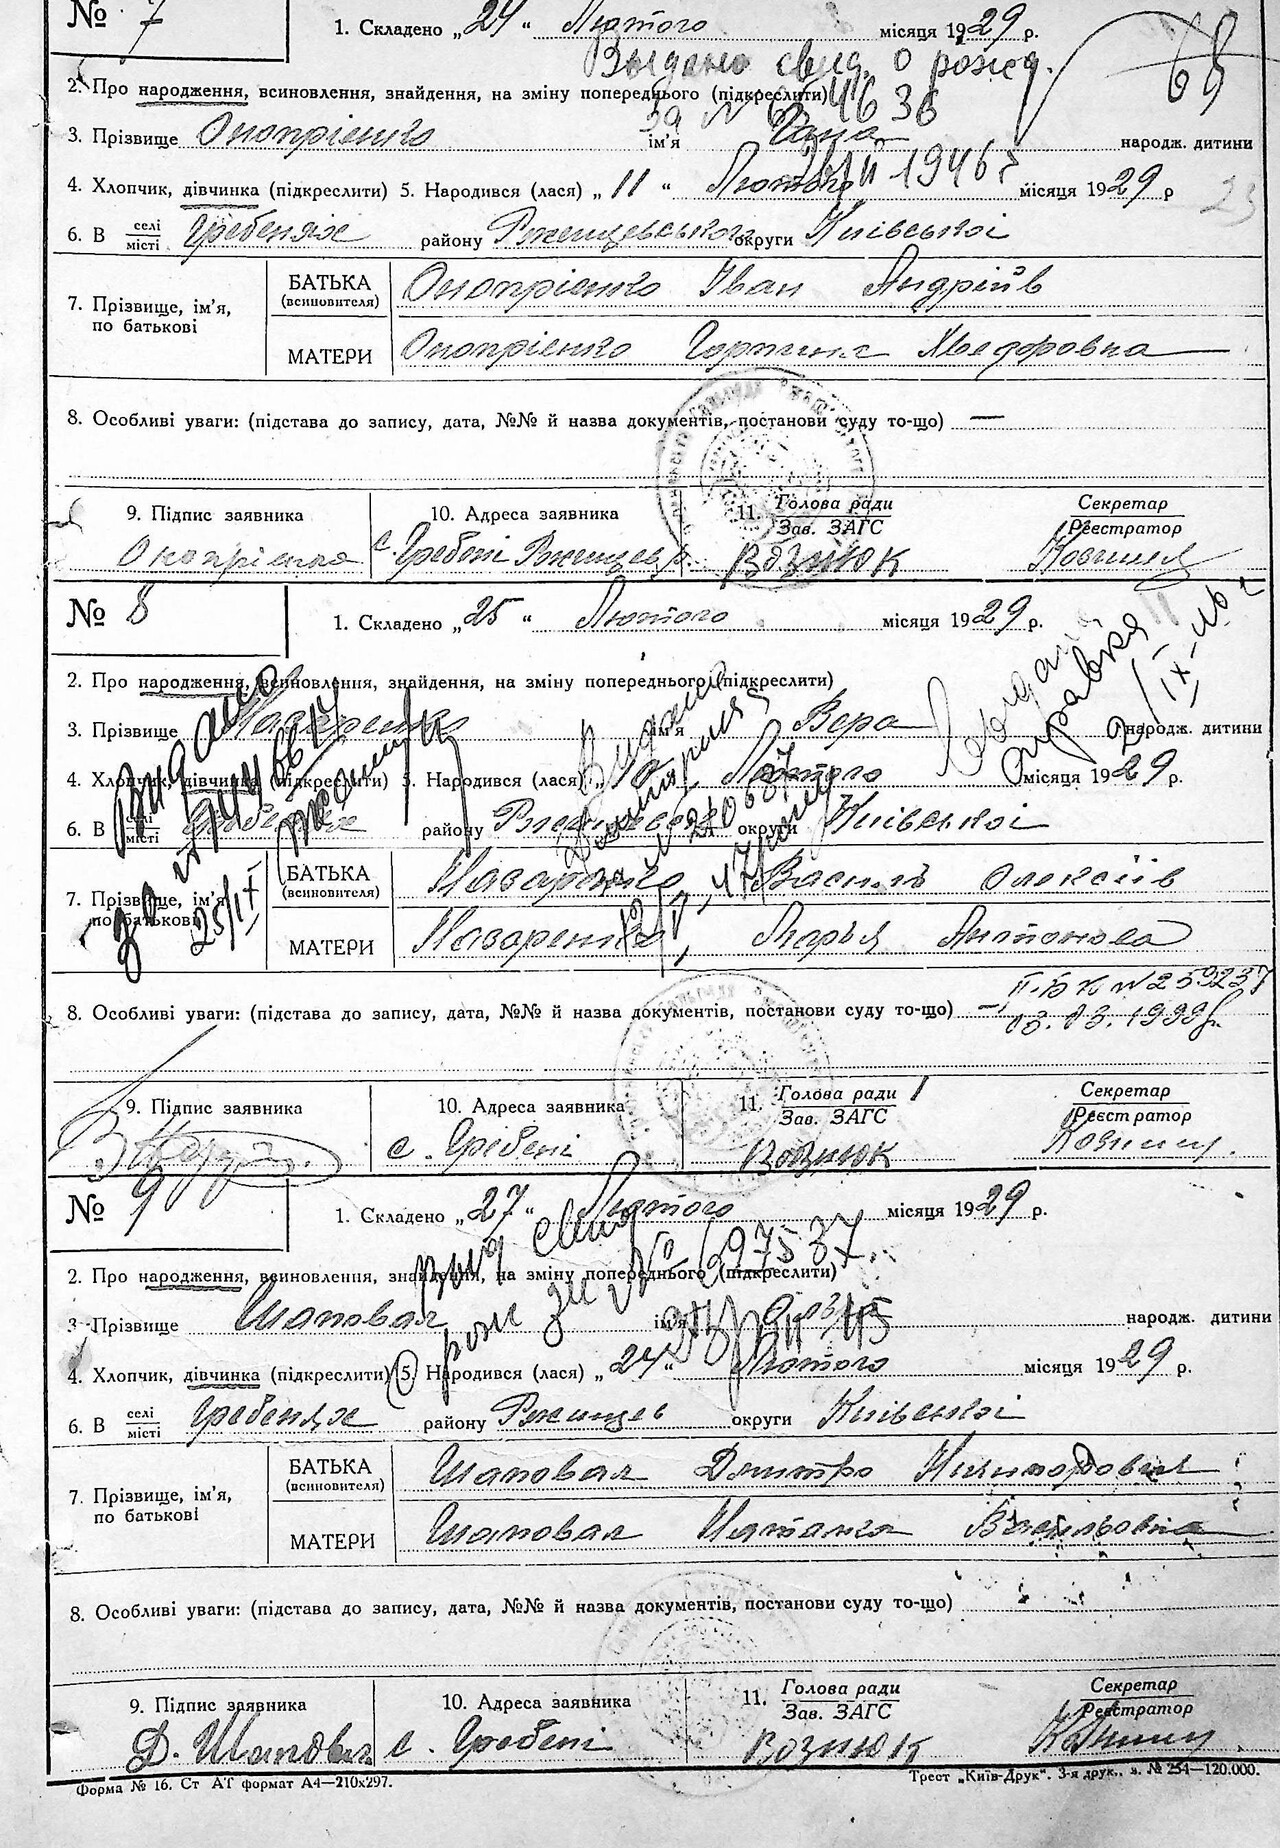 № 7
1. Складено „24“ Лютого місяця 1929 р.
Выдано свид. о рожд.
68
2. Про народження, всиновлення, знайдення, на зміну попереднього (підкреслити)
3. Прізвище Онопрієнко ім'я Гана народж. дитини
4. Хлопчик, дівчинка (підкреслити) 5. Народився (лася) „11“ Лютого місяця 1929 р
6. В селі/місті Гребенях району Ржищевського округи Київської
7. Прізвище, ім'я, по батькові
БАТЬКА (всиновителя) Онопрієнко Іван Андріїв
МАТЕРИ Онопрієнко Горпина Хведоровна
8. Особливі уваги: (підстава до запису, дата, №№ й назва документів, постанови суду то-що) —
9. Підпис заявника 10. Адреса заявника 11. Голова ради Зав. ЗАГС Секретар Реєстратор
Онопрієнко с. Гребені Ржищев р. Вознюк
№ 8
1. Складено „25“ Лютого місяця 1929 р.
2. Про народження, всиновлення, знайдення, на зміну попереднього (підкреслити)
3. Прізвище Назаренко ім'я Вера народж. дитини
4. Хлопчик, дівчинка (підкреслити) 5. Народився (лася) Лютого місяця 1929 р.
6. В селі/місті Гребенях району округи Київської
7. Прізвище, ім'я, по батькові
БАТЬКА (всиновителя) Назаренко Василь Олексіїв
МАТЕРИ Назаренко Марья Антонова
Видано
25/IX
Видано
№ 210687
Выдана справка
8. Особливі уваги: (підстава до запису, дата, №№ й назва документів, постанови суду то-що) —
№ 259237
03.03.1999
9. Підпис заявника 10. Адреса заявника 11. Голова ради Зав. ЗАГС Секретар Реєстратор
с. Гребені Вознюк
№ 9
1. Складено „27“ Лютого місяця 1929 р.
выд свид
рож за № 697537
2. Про народження, всиновлення, знайдення, на зміну попереднього (підкреслити)
3. Прізвище Шаповал ім'я народж. дитини
4. Хлопчик, дівчинка (підкреслити) 5. Народився (лася) „24“ Лютого місяця 1929 р.
6. В селі/місті Гребенях району Ржищев округи Київської
7. Прізвище, ім'я, по батькові
БАТЬКА (всиновителя) Шаповал Дмитро Никифорович
МАТЕРИ Шаповал Наталка Васильовна
8. Особливі уваги: (підстава до запису, дата, №№ й назва документів, постанови суду то-що)
9. Підпис заявника 10. Адреса заявника 11. Голова ради Зав. ЗАГС Секретар Реєстратор
Д. Шаповал с. Гребені Вознюк
Форма № 16. Ст АТ формат А4—210x297. Трест „Київ-Друк“. 3-я друк., з. № 254—120.000.